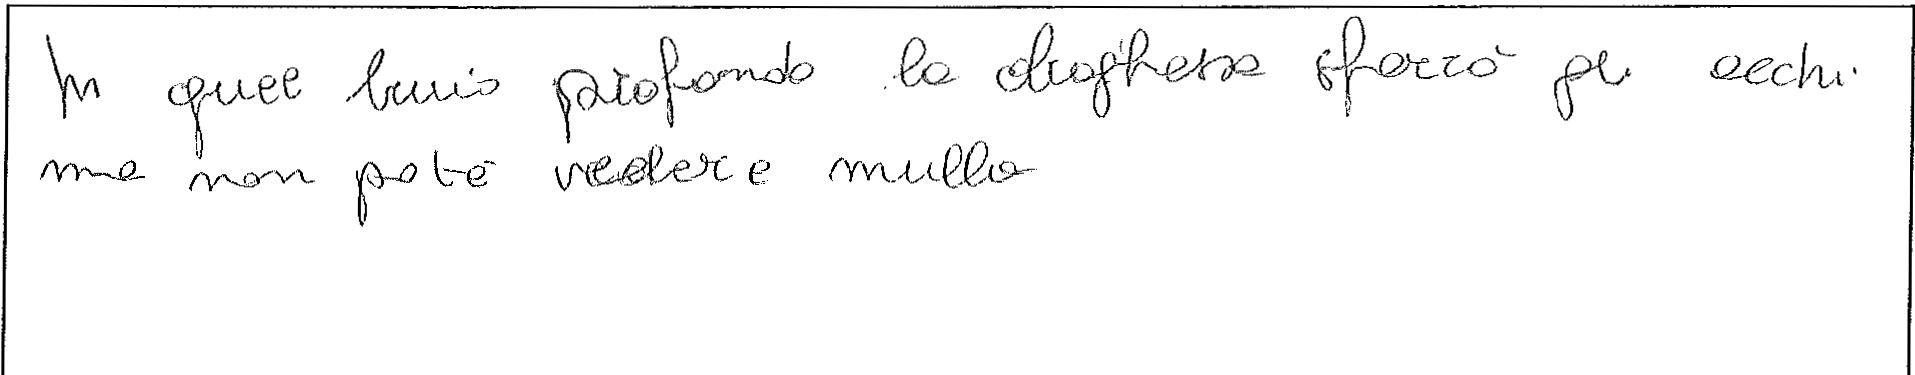 In quel buio profondo la draghessa sferrò gli occhi
ma non poté vedere nulla